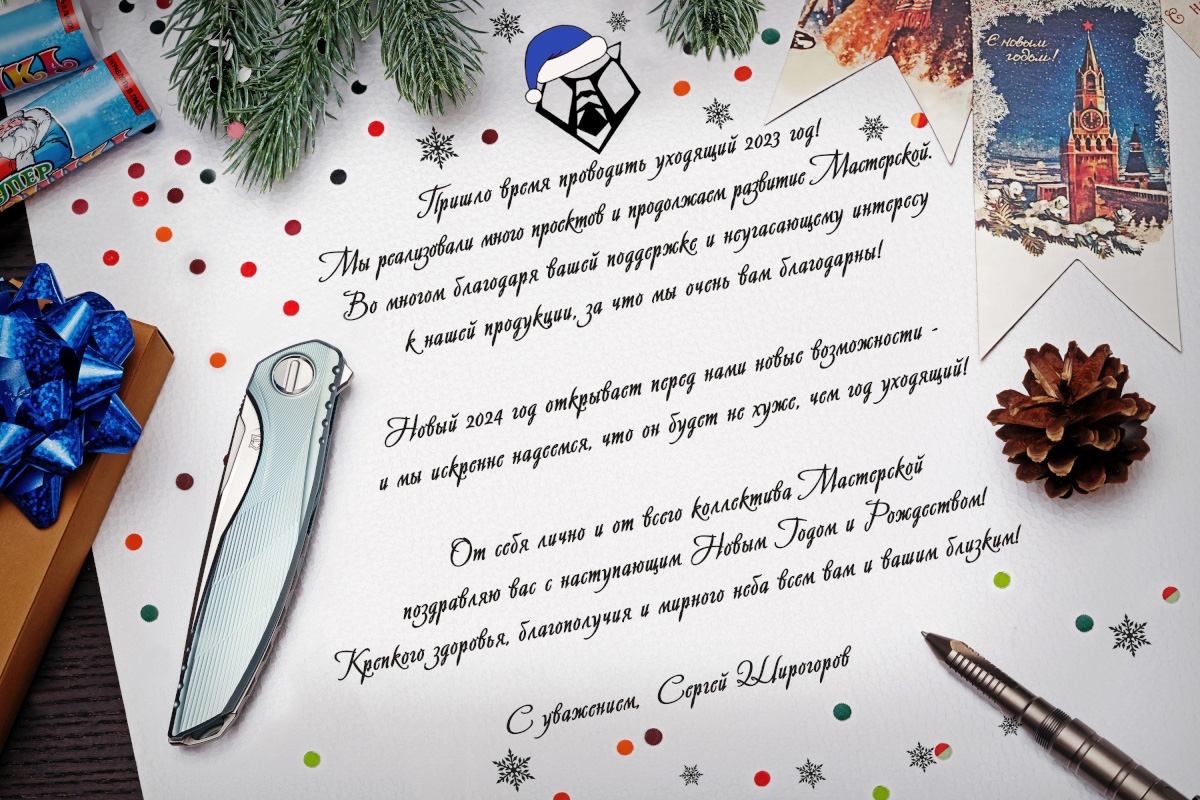 С новым
годом!
Пришло время проводить уходящий 2023 год!
Мы реализовали много проектов и продолжаем развитие Мастерской.
Во многом благодаря вашей поддержке и неугасающему интересу
к нашей продукции, за что мы очень вам благодарны!
Новый 2024 год открывает перед нами новые возможности -
и мы искренне надеемся, что он будет не хуже, чем год уходящий!
От себя лично и от всего коллектива Мастерской
поздравляю вас с наступающим Новым Годом и Рождеством!
Крепкого здоровья, благополучия и мирного неба всем вам и вашим близким!
С уважением, Сергей Широгоров